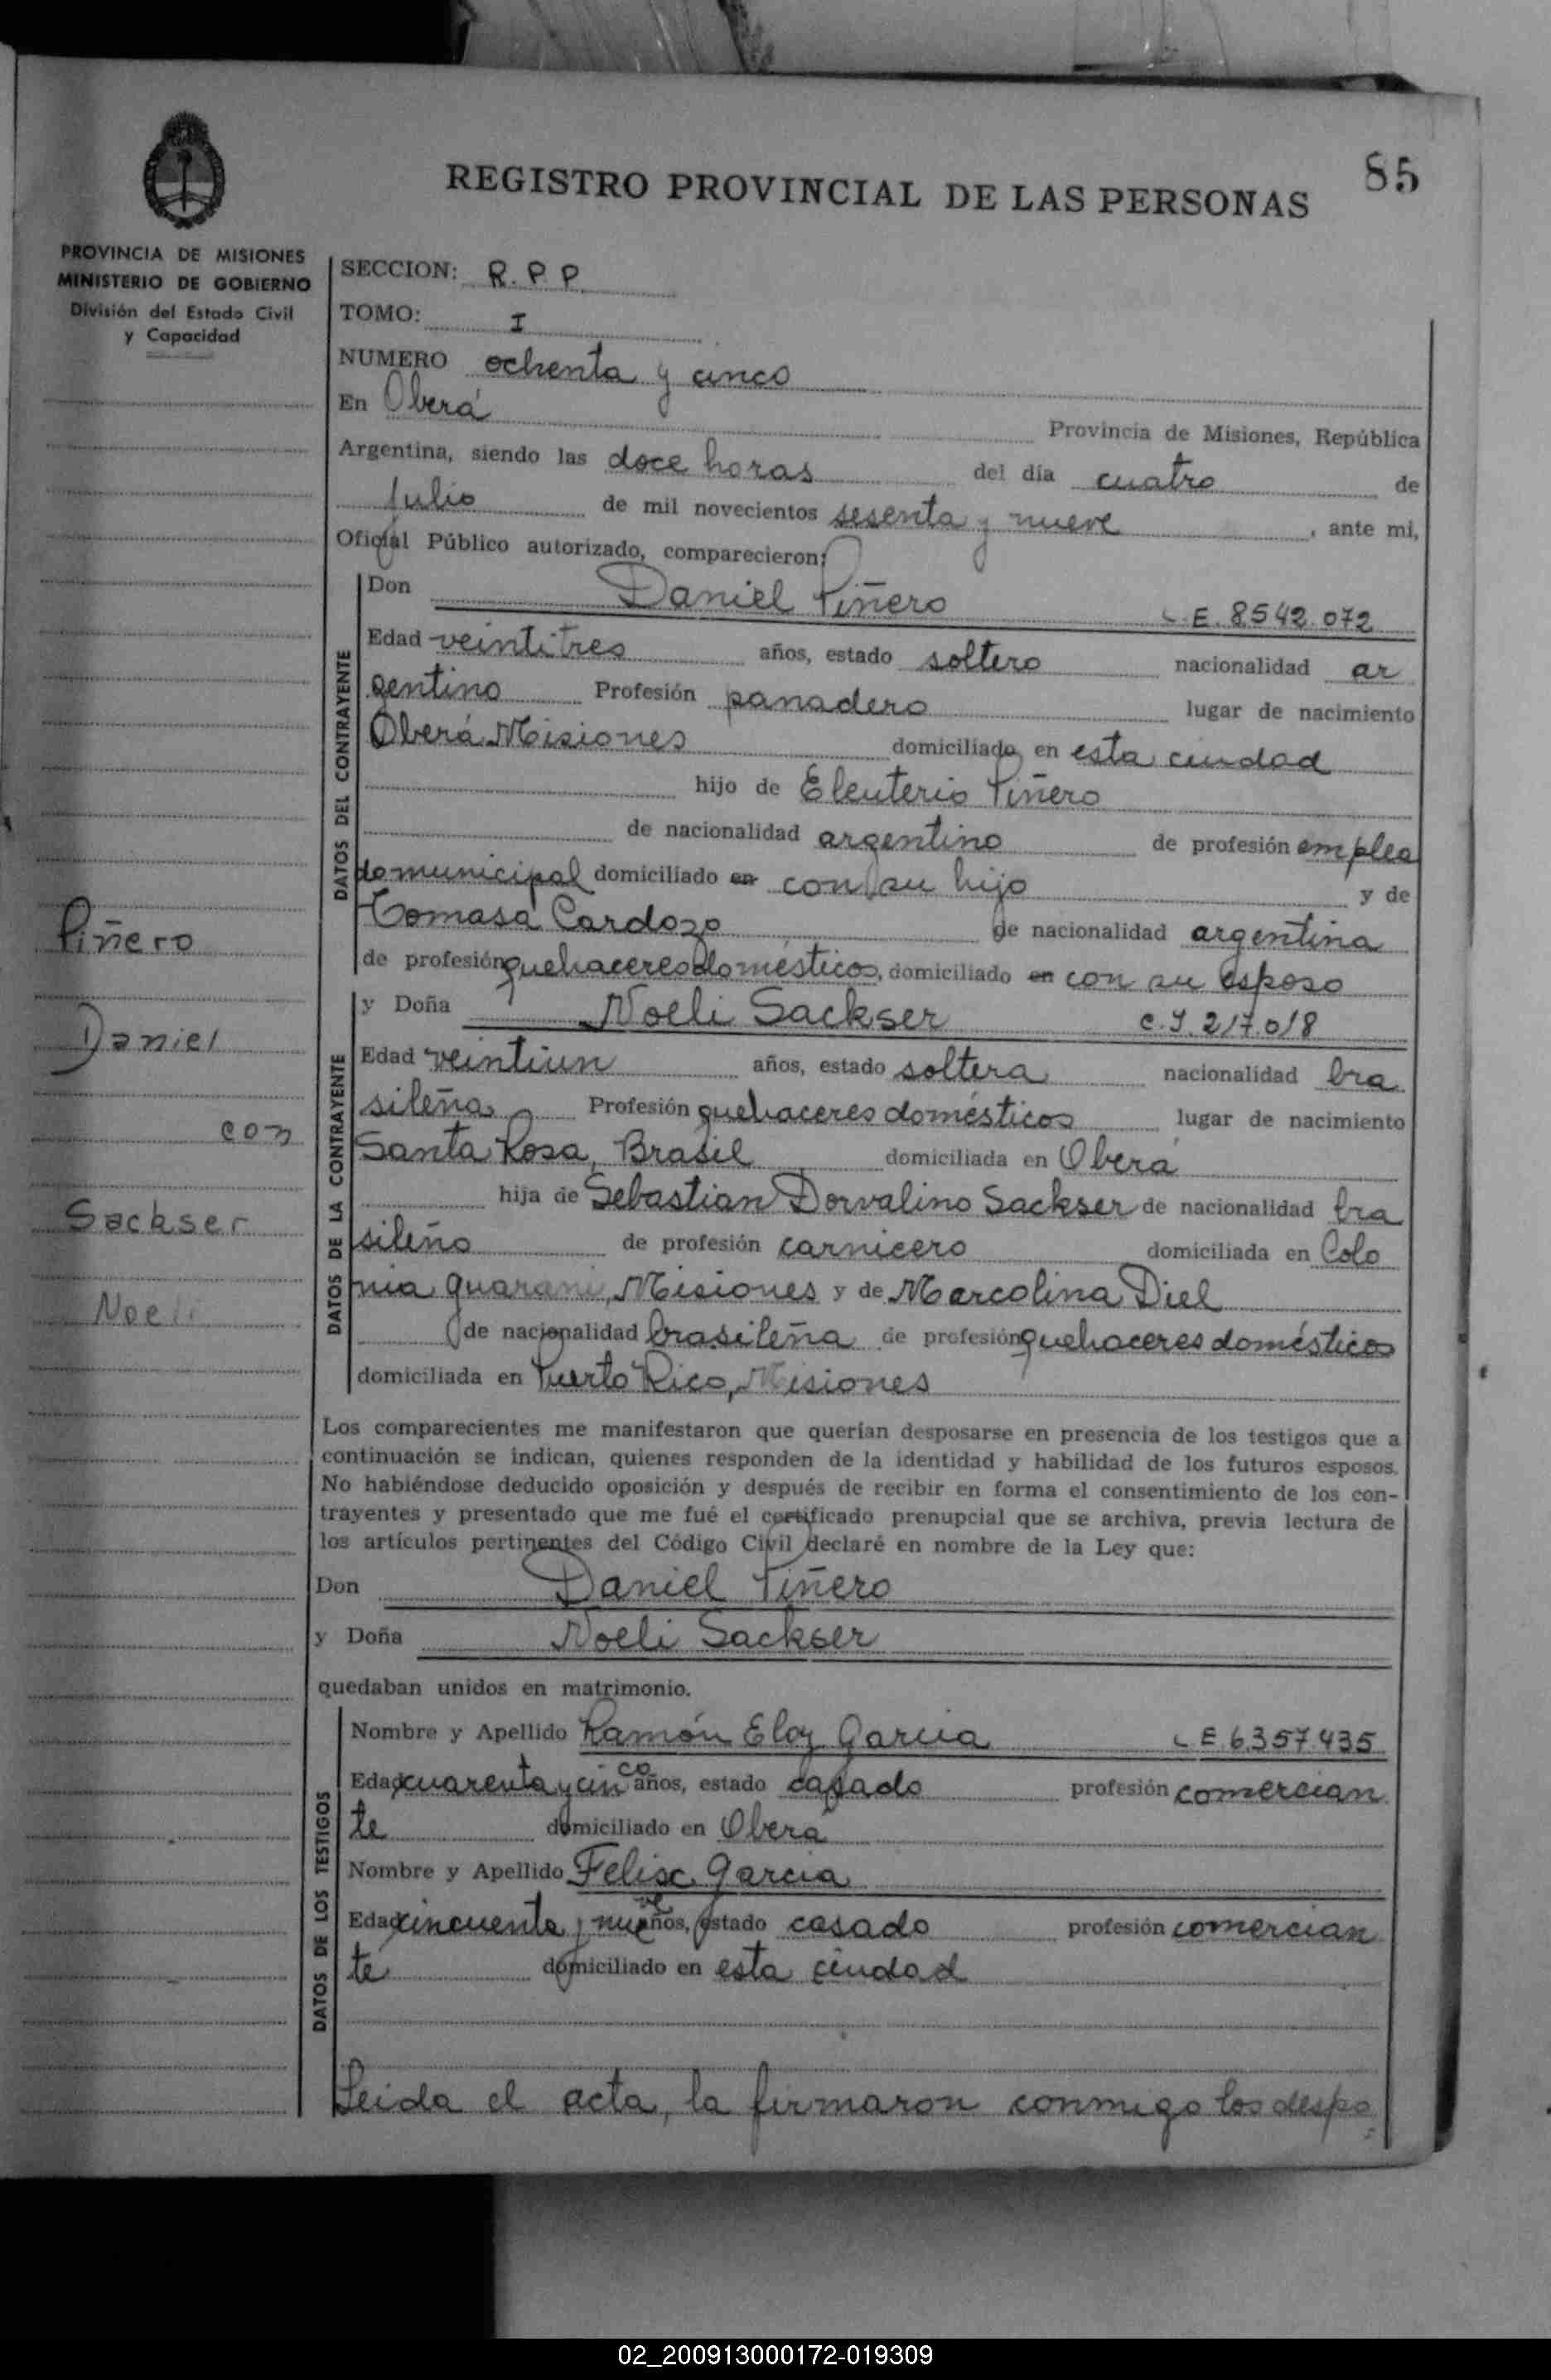 85
REGISTRO PROVINCIAL DE LAS PERSONAS
PROVINCIA DE MISIONES
MINISTERIO DE GOBIERNO
División del Estado Civil
y Capacidad
SECCION: R.P.P.
TOMO: I
NUMERO ochenta y cinco
En Oberá Provincia de Misiones, República
Argentina, siendo las doce horas del día cuatro de
Julio de mil novecientos sesenta y nueve, ante mi,
Oficial Público autorizado, comparecieron:
DATOS DEL CONTRAYENTE
Don Daniel Piñero L.E. 8542.072
Edad veintitres años, estado soltero nacionalidad ar
gentino Profesión panadero lugar de nacimiento
Oberá Misiones domiciliado en esta ciudad
hijo de Eleuterio Piñero
de nacionalidad argentino de profesión emplea
do municipal domiciliado en con su hijo y de
Tomasa Cardozo de nacionalidad argentina
de profesión quehaceres domésticos, domiciliado en con su esposo
DATOS DE LA CONTRAYENTE
y Doña Noeli Sackser C.I. 217.018
Edad veintiun años, estado soltera nacionalidad bra
sileña Profesión quehaceres domésticos lugar de nacimiento
Santa Rosa, Brasil domiciliada en Oberá
hija de Sebastian Dorvalino Sackser de nacionalidad bra
sileño de profesión carnicero domiciliada en Colo
nia guarani, Misiones y de Marcolina Diel
de nacionalidad brasileña de profesión quehaceres domésticos
domiciliada en Puerto Rico, Misiones
Piñero
Daniel
con
Sackser
Noeli
Los comparecientes me manifestaron que querían desposarse en presencia de los testigos que a
continuación se indican, quienes responden de la identidad y habilidad de los futuros esposos.
No habiéndose deducido oposición y después de recibir en forma el consentimiento de los con-
trayentes y presentado que me fué el certificado prenupcial que se archiva, previa lectura de
los artículos pertinentes del Código Civil declaré en nombre de la Ley que:
Don Daniel Piñero
y Doña Noeli Sackser
quedaban unidos en matrimonio.
DATOS DE LOS TESTIGOS
Nombre y Apellido Ramón Eloy Garcia L.E. 6.357.435
Edad cuarenta y cinco años, estado casado profesión comercian
te domiciliado en Obera
Nombre y Apellido Felix Garcia
Edad cincuenta y nueve años, estado casado profesión comercian
te domiciliado en esta ciudad
Leida el acta, la firmaron conmigo los despo
02_200913000172-019309